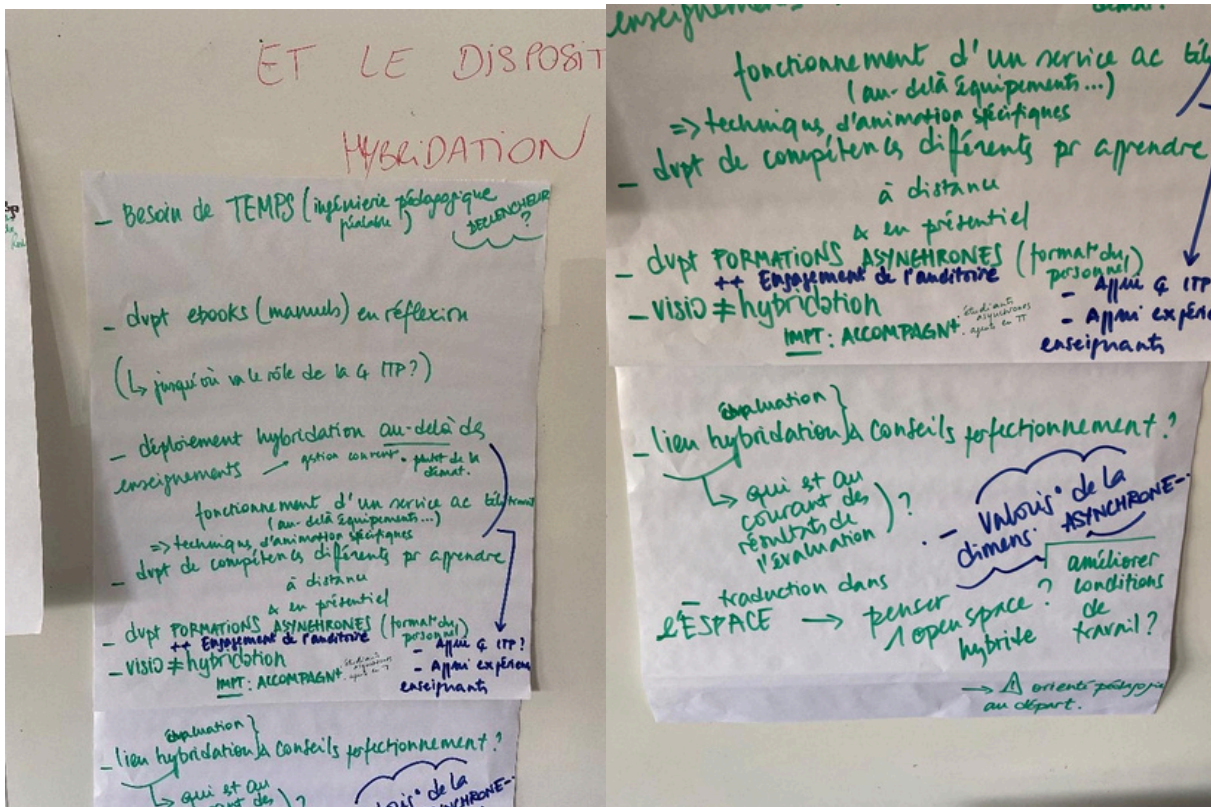 ET LE DISPOSIT
HYBRIDATION
- Besoin de TEMPS (ingénierie pédagogique
préalable)
DECLENCHEUR
?
- dvpt ebooks (manuels) en réflexion
(↳ jusqu'où va le rôle de la ITP?)
- déploiement hybridation au-delà des
enseignements
démat.
fonctionnement d'un service ac
(au-delà équipements...)
=> techniques d'animation spécifiques
- dvpt de compétences différents pr apprendre
à distance
& en présentiel
- dvpt FORMATIONS ASYNCHRONES (format° du
personnel)
++ Engagement de l'auditoire
- visio ≠ hybridation
IMPT: ACCOMPAGNt
- Appui ITP?
- Appui expérien
enseignants
évaluation }
- lien hybridation à conseils perfectionnement?
↳ qui est au
rant des ) ?
valoris° de la
YNCHRONE-
enseignements
démat.
fonctionnement d'un service ac
(au-delà équipements...)
=> techniques d'animation spécifiques
- dvpt de compétences différents pr apprendre
à distance
& en présentiel
- dvpt FORMATIONS ASYNCHRONES (format° du
personnel)
++ Engagement de l'auditoire
- visio ≠ hybridation
étudiants
asynchrones
IMPT: ACCOMPAGNt
- Appui ITP
- Appui expérie
enseignants
évaluation }
- lien hybridation à conseils perfectionnement?
↳ qui est au
courant des
résultats de
l'évaluation ) ?
- valoris° de la
dimens° ASYNCHRONE-
- traduction dans
l'ESPACE → penser
1 open space ?
hybride
améliorer
conditions
de
travail?
→ ⚠ orienté pédagogie
au départ.